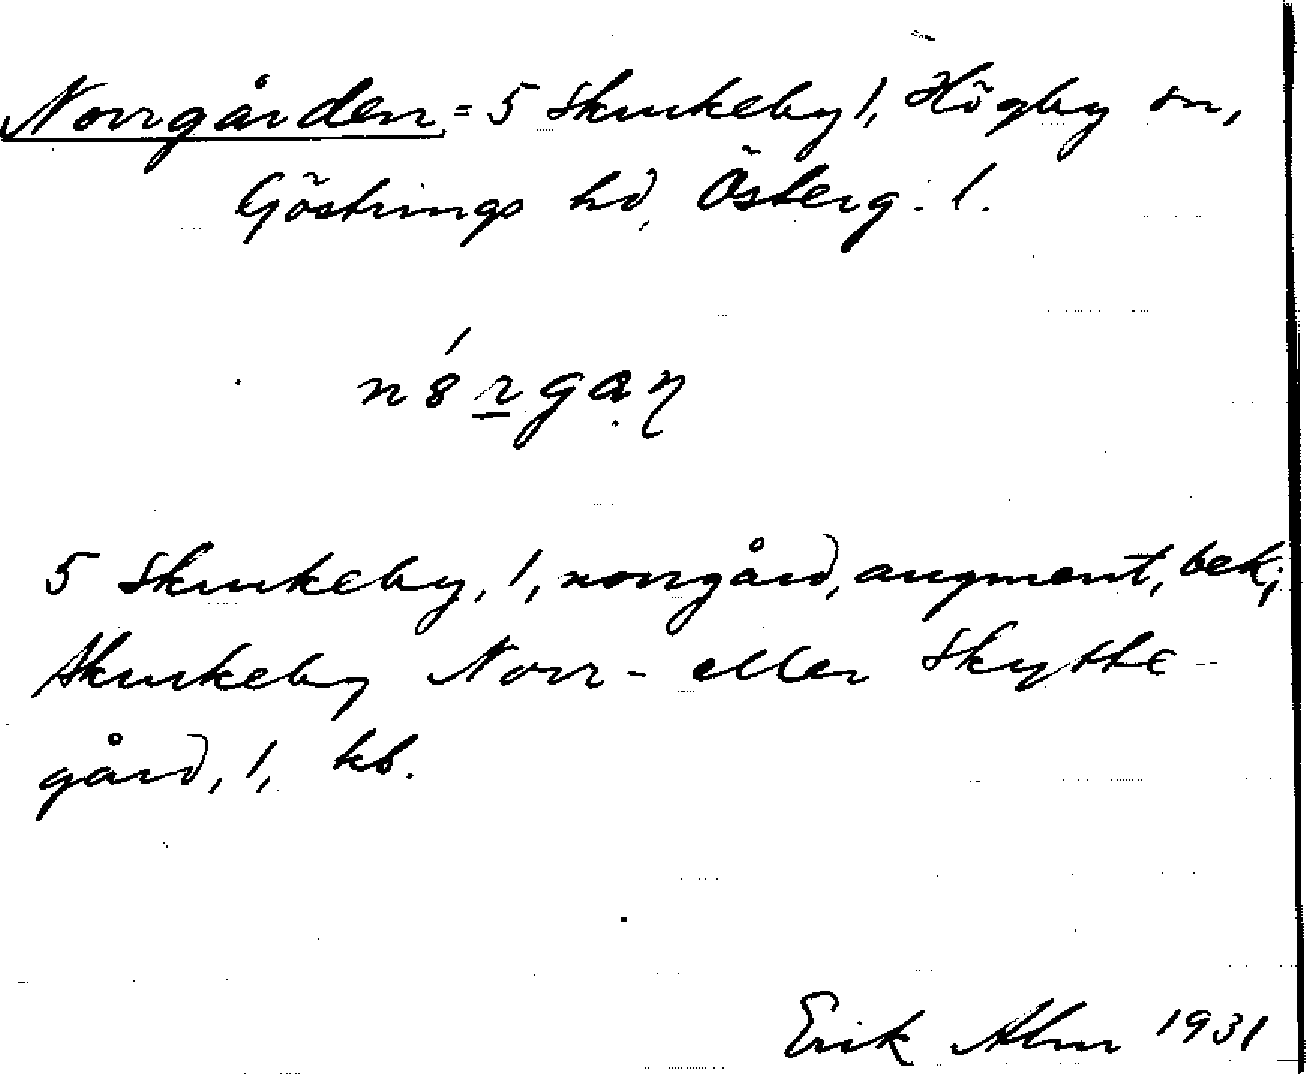 Norrgården = 5 Skurkeby 1, Högby sn,
Göstrings hd, Österg. l.
n8́rgaη
5 Skurkeby, 1, norrgård, augment, bek;
Skurkeby Norr- eller Skytte-
gård, 1, kb.
Erik Alm 1931